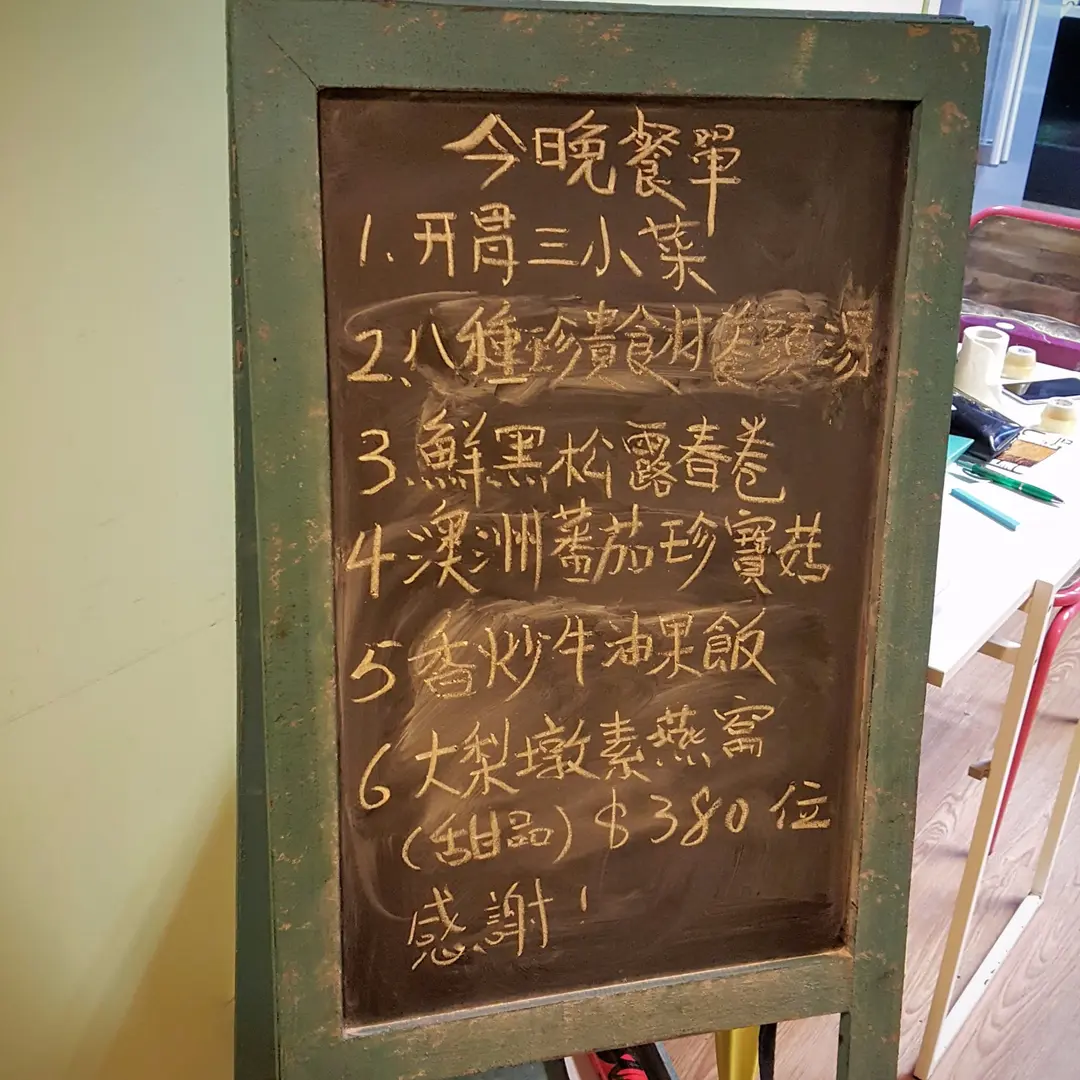 今晚餐單
1. 开胃三小菜
2、八種珍貴食材 頭湯
3、鮮黑松露春卷
4 澳洲蕃茄珍寶菇
5 香炒牛油果飯
6 大梨墩素燕窩
(甜品) $380 位
感謝!